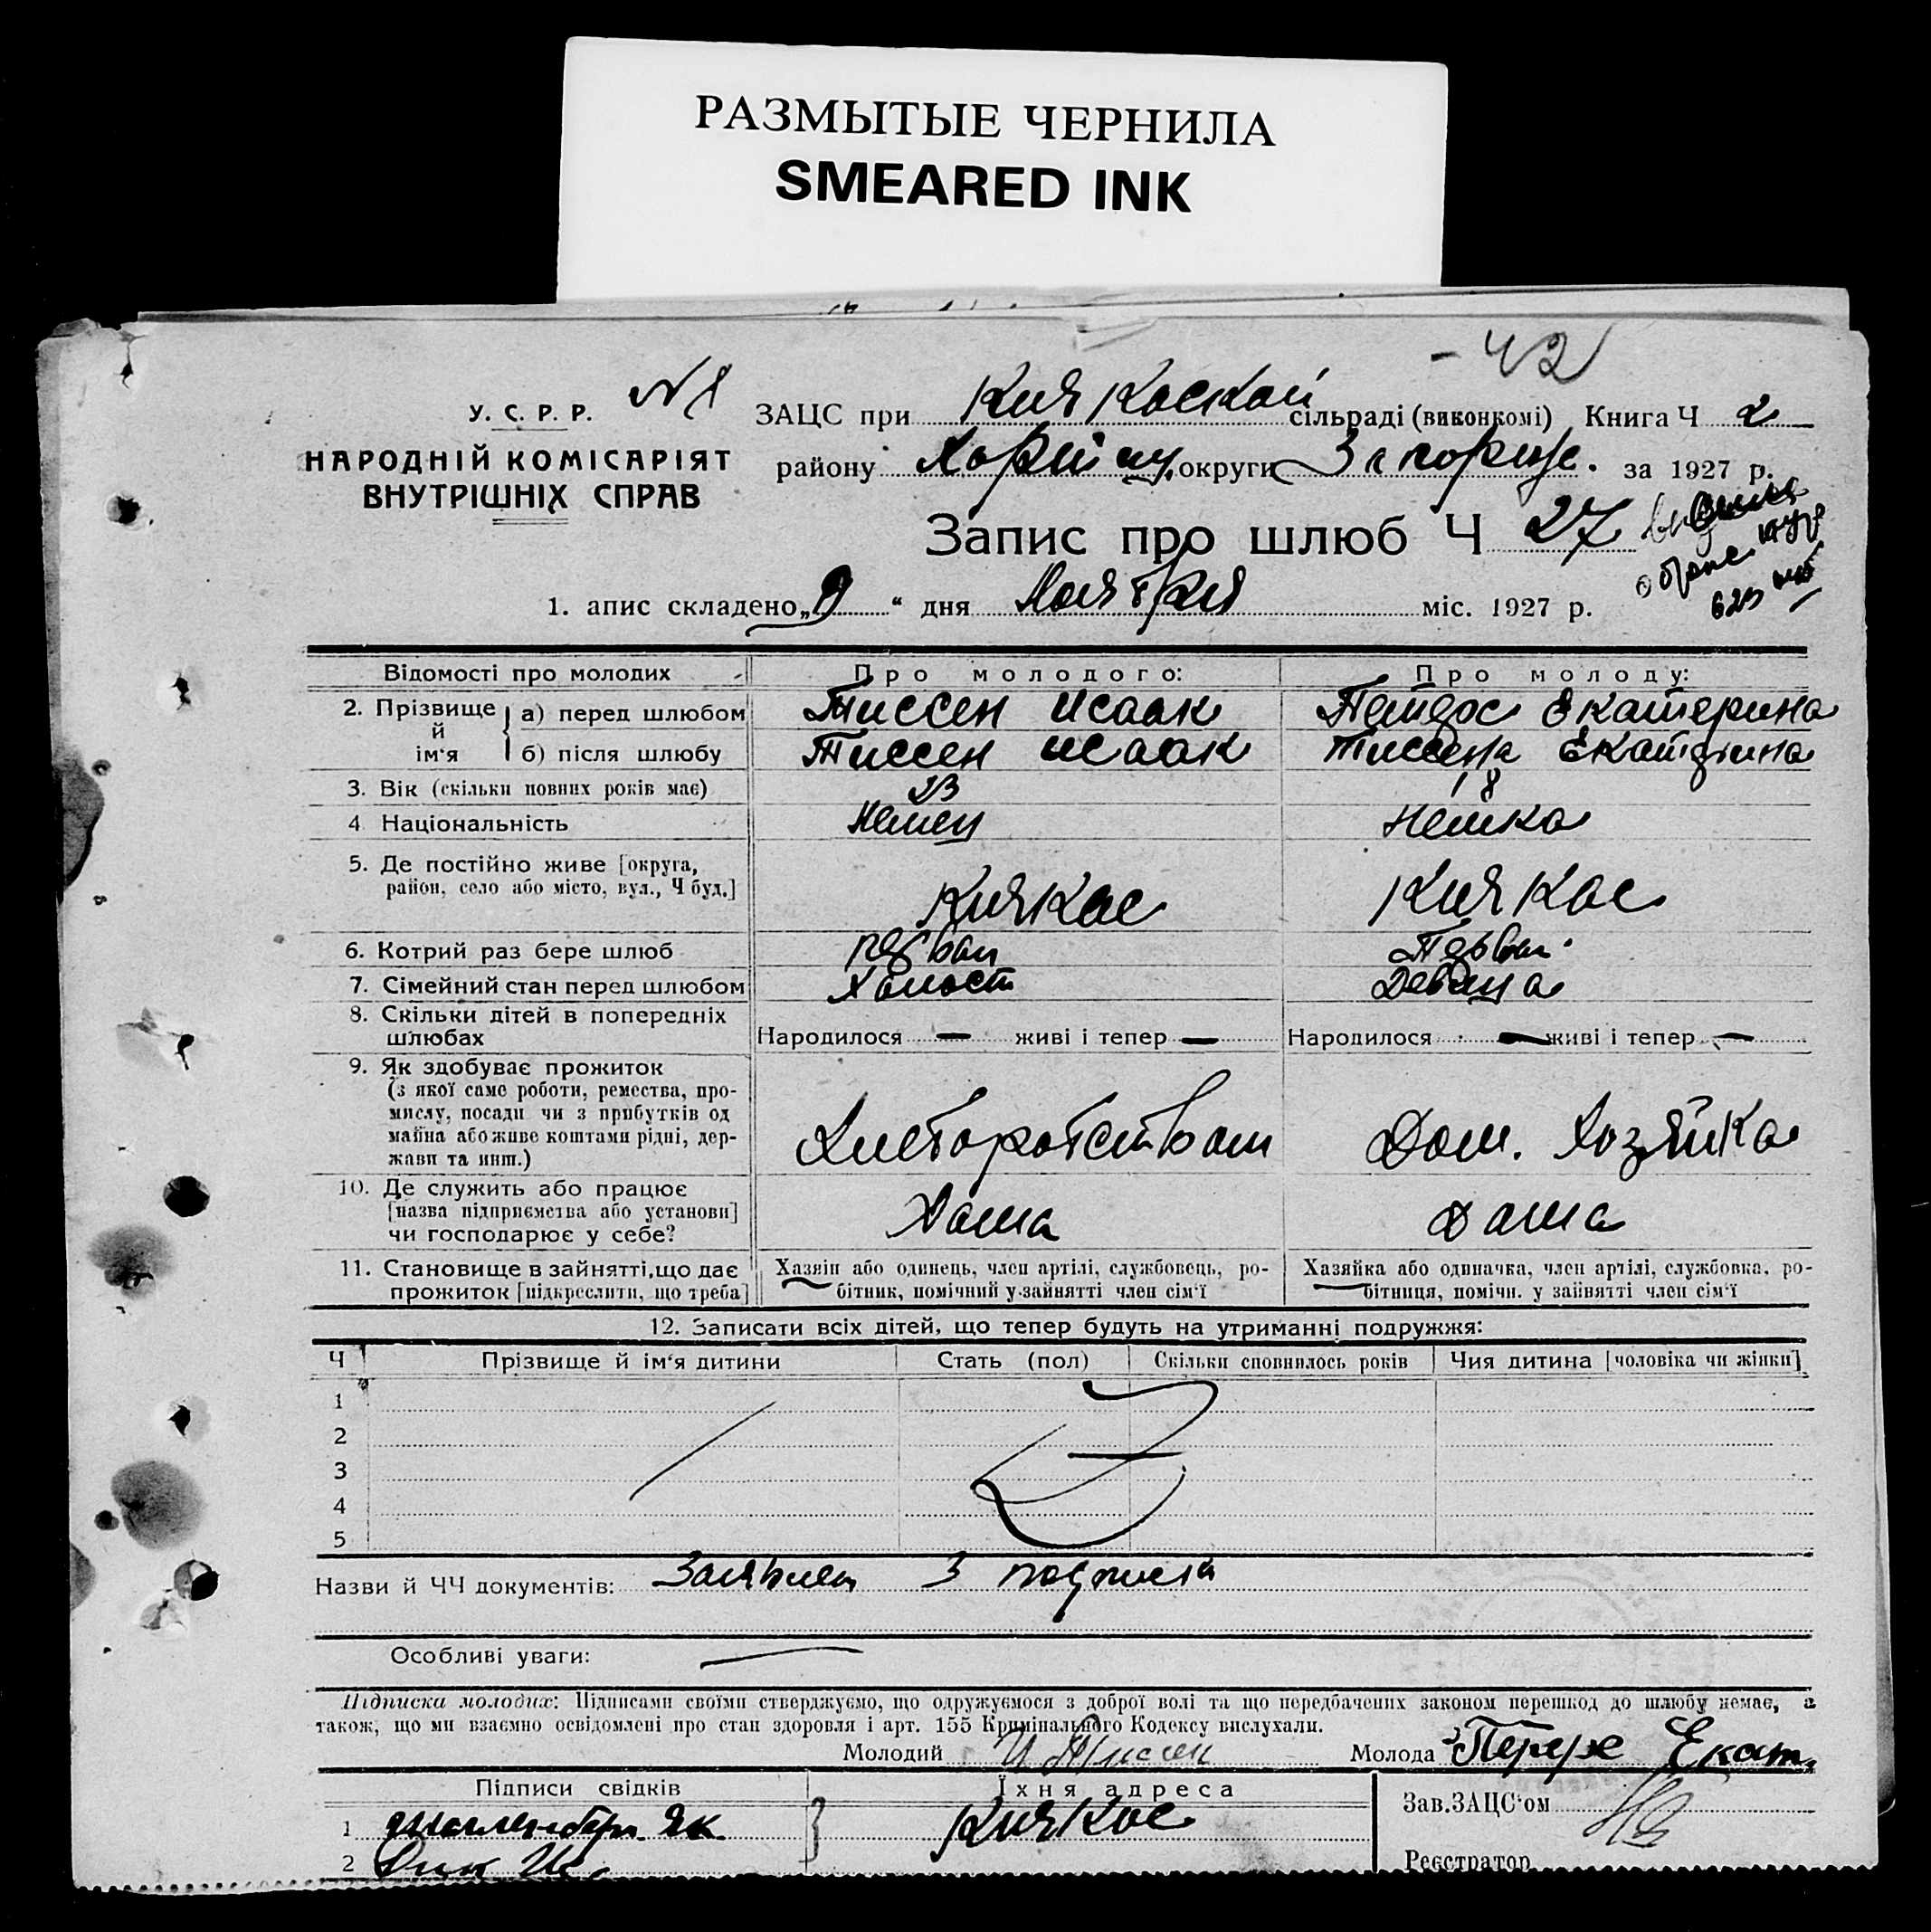 РАЗМЫТЫЕ ЧЕРНИЛА
SMEARED INK
- 42
У. С. Р. Р.
НАРОДНІЙ КОМІСАРІЯТ
ВНУТРІШНІХ СПРАВ
ЗАЦС при Кичкаской сільраді (виконкомі) Книга Ч 2
району Хортиц. округи Запориж. за 1927 р.
Запис про шлюб Ч 27
1. апис складено „9“ дня Ноября міс. 1927 р.
Відомості про молодих Про молодого: Про молоду:
2. Прізвище й ім'я а) перед шлюбом Тиссен Исаак Екатерина
б) після шлюбу Тиссен Исаак Тиссена Екатерина
3. Вік (скільки повних років має) 23 18
4 Національність Немец Немка
5. Де постійно живе [округа,
район, село або місто, вул., Ч буд.] Кичкас Кичкас
6. Котрий раз бере шлюб первый Первый
7. Сімейний стан перед шлюбом Холост Девица
8. Скільки дітей в попередніх
шлюбах Народилося — живі і тепер — Народилося — живі і тепер —
9. Як здобуває прожиток
(з якої саме роботи, ремества, про-
мислу, посади чи з прибутків од
майна або живе коштами рідні, дер-
жави та инш.) Дом. Хозяйка
10. Де служить або працює
[назва підприємства або установи]
чи господарює у себе? Дома Дома
11. Становище в зайнятті, що дає
прожиток [підкреслити, що треба]
Хазяін або одинець, член артілі, службовець, ро-
бітник, помічний у зайнятті член сім'ї
Хазяйка або одиначка, член артілі, службовка, ро-
бітниця, помічн. у зайнятті член сім'ї
12. Записати всіх дітей, що тепер будуть на утриманні подружжя:
Ч Прізвище й ім'я дитини Стать (пол) Скільки сповнилось років Чия дитина [чоловіка чи жінки]
1
2
3
4
5
Назви й ЧЧ документів: Заявлен 3 подписка
Особливі уваги: —
Підписка молодих: Підписами своїми стверджуємо, що одружуємося з доброї волі та що передбачених законом перешкод до шлюбу немає, а
також, що ми взаємно освідомлені про стан здоровля і арт. 155 Кримінального Кодексу вислухали.
Молодий И Тиссен Молода Екат.
Підписи свідків Їхня адреса Зав. ЗАЦС'ом
1 Як. Кичкас
2 Дик
Реєстратор